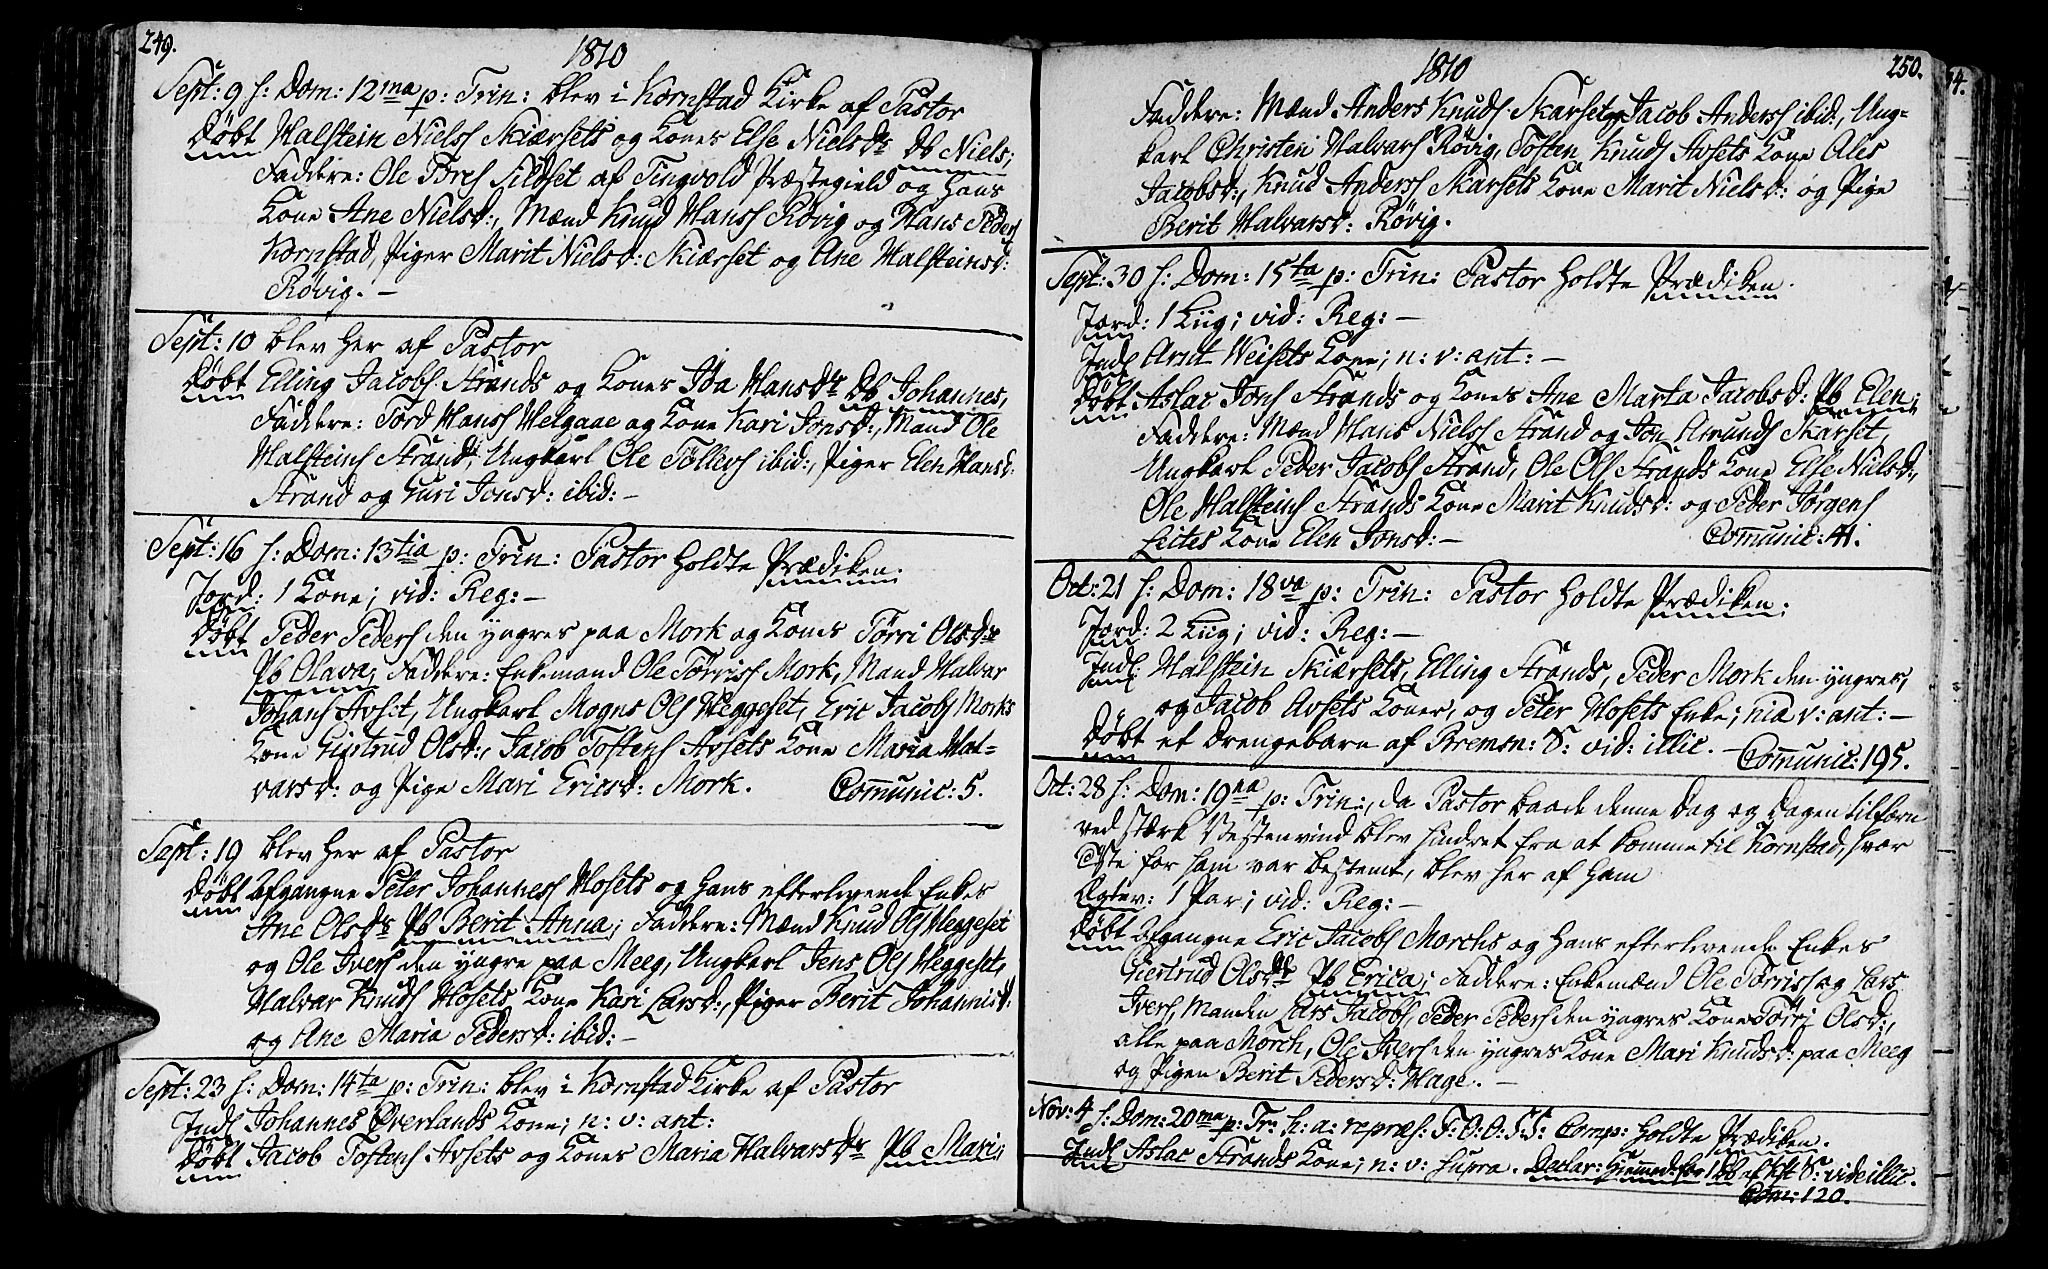 249.
1810
Sept: 9 h: Dom: 12ma p: Trin: blev i Kornstad Kirke af Pastor
Døbt Halstein Niels Skiærsets og Kones Else Nielsdr Db Niels;
Faddere: Ole Tores Sildset af Tingvold Præstegield og hans
Kone Ane Nielsd:, Mænd Knud Hans Røvig og Hans Peders
Kornstad, Piger Marit Nielsd: Skiærset og Ane Halsteinsd:
Røvig. —
Sept: 10 blev her af Pastor
Døbt Elling Jacobs Strands og Kones Ida Hansdr Db Johannes,
Faddere: Tord Hans Helgaae og Kone Kari Jonsd:, Mand Ole
Halsteins Strand, Ungkarl Ole Tøllevs ibid:, Piger Elen Hansd:
Strand og Guri Jonsd: ibid: —
Sept: 16 h: Dom: 13tia p: Trin: Pastor holdte Prædiken.
Jord: 1 Kone; vid: Reg: —
Døbt Peder Peders den yngres paa Mork og Kones Tørri Olsdr
Pb Olava; Faddere: Enkemand Ole Tørris Mork, Mand Halvar
Johans Avset, Ungkarl Mogns Ols Heggeset, Eric Jacobs Morks
Kone Giertrud Olsd:, Jacob Tostens Avsets Kone Maria Hal-
varsd: og Pige Mari Ericsd: Mork. Communic: 5.
Sept: 19 blev her af Pastor
Døbt afgangne Peter Johannes Hosets og hans efterlevende Enkes
Ane Olsdr Pb Berit Anna; Faddere: Mænd Knud Ols Heggeset
og Ole Ivers den yngre paa Meeg, Ungkarl Jens Ols Heggeset,
Halvar Knuds Hosets Kone Kari Larsd:, Piger Berit Johannisd:
og Ane Maria Pedersd: ibid: —
Sept: 23 h: Dom: 14ta p: Trin: blev i Kornstad Kirke af Pastor
Indl Johannes Øverlands Kone; n: v: ant:
Døbt Jacob Tostens Avsets og Kones Maria Halvarsdr Pb Mari;
1810
250.
Faddere: Mænd Anders Knuds Skarset og Jacob Anders ibid:, Ung-
karl Christen Halvars Røvig, Tosten Knuds Avsets Kone Ales
Jacobsd:, Knud Anders Skarsets Kone Marit Nielsd: og Pige
Berit Halvarsd: Røvig.
Sept: 30 h: Dom: 15ta p: Trin: Pastor holdte Prædiken.
Jord: 1 Liig; vid: Reg: —
Indl Arnt Weisets Kone; n: v: ant: —
Døbt Aslac Jons Strands og Kones Ane Marta Jacobsd: Pb Elen;
Faddere: Mænd Hans Niels Strand og Jon Amunds Skarset,
Ungkarl Peder Jacobs Strand, Ole Ols Strands Kone Else Nielsd:,
Ole Halsteins Strands Kone Marit Knudsd: og Peder Jørgens
Leites Kone Elen Jonsd: — Communic: 41.
Oct: 21 h: Dom: 18va p: Trin: Pastor holdte Prædiken;
Jord: 2 Liig; vid: Reg: —
Indl: Halstein Skiærsets, Elling Strands, Peder Mork den yngres,
og Jacob Avsets Koner, og Peter Hosets Enke; nia v: ant: —
Døbt et Drengebarn af Bremsn: S: vid: illic. — Communic: 195.
Oct: 28 h: Dom: 19na p: Trin:, da Pastor baade denne Dag og Dagen tilforn
ved stærk Vestenvind blev hindret fra at komme til Kornstad, hvor
Tjste for ham var bestemt, blev her af ham
Ægtev: 1 Par; vid: Reg: —
Døbt afgangne Eric Jacobs Morchs og hans efterlevende Enkes
Giertrud Olsdr Pb Erica; Faddere: Enkemænd Ole Tørris og Lars
Ivers, Manden Lars Jacobs, Peder Peders den yngres Kone Tørri Olsd:,
alle paa Morch, Ole Ivers den yngres Kone Mari Knudsd: paa Meeg
og Pigen Berit Pedersd: Hage. —
Nov: 4 h: Dom: 20ma p: Tr: h: a: repræs: F: O: O: S: S: Comp: holdte Prædiken.
Indl Aslac Strands Kone; n: v: supra. Declar: Hiemmed: for 1 Db af Kst S: vide illic.
Com: 120.